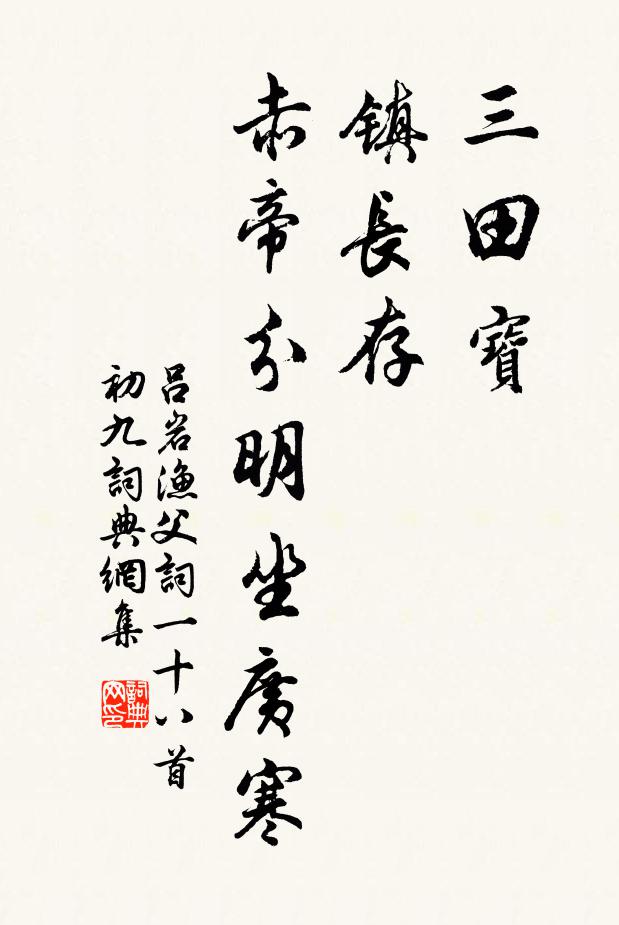 三田寶
鎮長存
赤帝分明坐廣寒
呂岩漁父詞一十八首
初九詞典網集
詞典网印